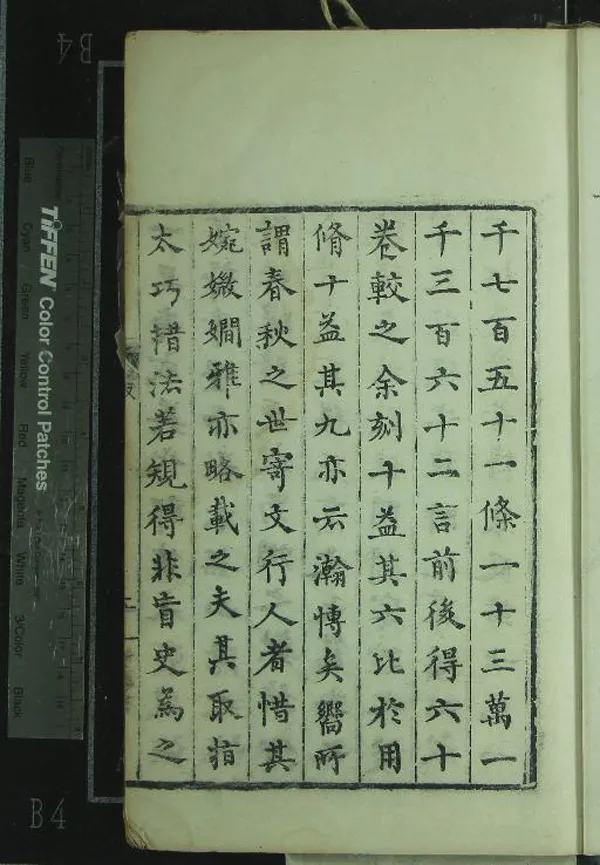 千七百五十一條一十三萬一
千三百六十二言前後得六十
卷較之余刻十益其六比於用
脩十益其九亦云瀚博矣嚮所
謂春秋之世寄文行人者惜其
婉媺嫺雅亦略載之夫其取指
太巧措法若規得非盲史為之
TIFFEN Color Control Patches
Blue Cyan Green Yellow Red Magenta White 3/Color Black
B4
B4